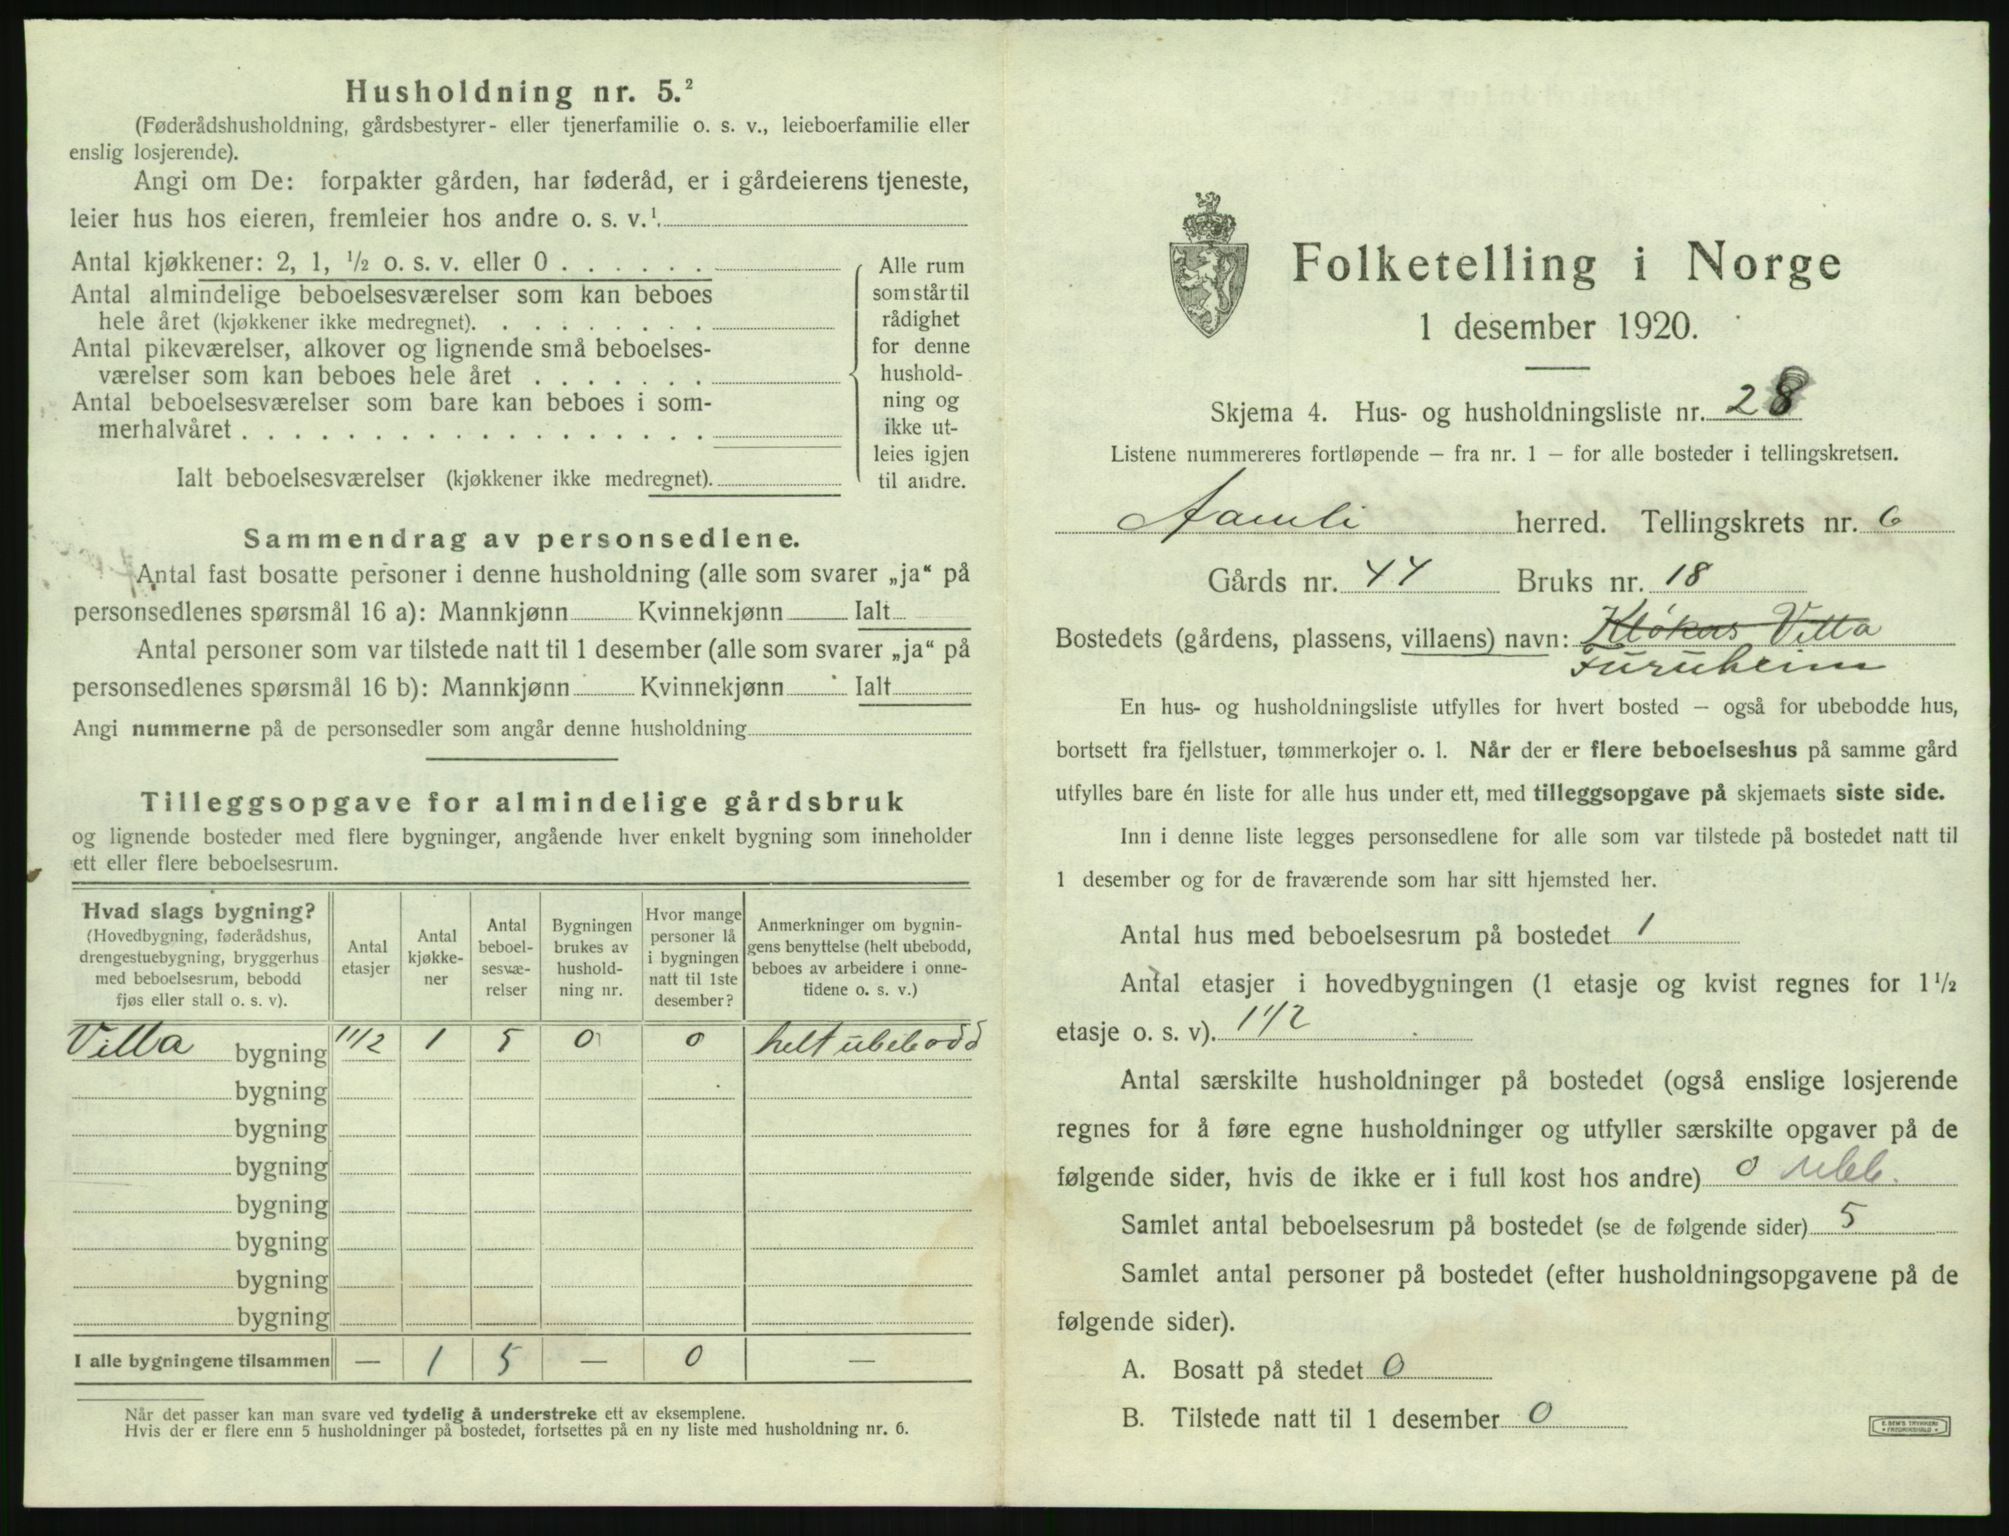 Husholdning nr. 5.²
(Føderådshusholdning, gårdsbestyrer- eller tjenerfamilie o. s. v., leieboerfamilie eller
enslig losjerende).
Angi om De: forpakter gården, har føderåd, er i gårdeierens tjeneste,
leier hus hos eieren, fremleier hos andre o. s. v.¹.
Antal kjøkkener: 2, 1, ½ o. s. v. eller 0 . . . . . .
Antal almindelige beboelsesværelser som kan beboes
hele året (kjøkkener ikke medregnet). . . . . . . . .
Antal pikeværelser, alkover og lignende små beboelses-
værelser som kan beboes hele året . . . . . . .
Antal beboelsesværelser som bare kan beboes i som-
merhalvåret . . . . . . . . . . . . . . . . . .
Ialt beboelsesværelser (kjøkkener ikke medregnet).
Alle rum
som står til
rådighet
for denne
hushold-
ning og
ikke ut-
leies igjen
til andre.
Sammendrag av personsedlene.
Antal fast bosatte personer i denne husholdning (alle som svarer „ja“ på
personsedlenes spørsmål 16 a): Mannkjønn Kvinnekjønn Ialt
Antal personer som var tilstede natt til 1 desember (alle som svarer „ja“ på
personsedlenes spørsmål 16 b): Mannkjønn Kvinnekjønn Ialt
Angi nummerne på de personsedler som angår denne husholdning
Tilleggsopgave for almindelige gårdsbruk
og lignende bosteder med flere bygninger, angående hver enkelt bygning som inneholder
ett eller flere beboelsesrum.
Hvad slags bygning?
(Hovedbygning, føderådshus,
drengestuebygning, bryggerhus
med beboelsesrum, bebodd
fjøs eller stall o. s. v).
Antal
etasjer
Antal
kjøkke-
ner
Antal
beboel-
sesvæ-
relser
Bygningen
brukes av
hushold-
ning nr.
Hvor mange
personer lå
i bygningen
natt til 1ste
desember?
Anmerkninger om bygnin-
gens benyttelse (helt ubebodd,
beboes av arbeidere i onne-
tidene o. s. v.)
Villa bygning 1 1/2 1 5 0 0 helt ubebodd
bygning
bygning
bygning
bygning
bygning
bygning
bygning
I alle bygningene tilsammen — 1 5 — 0 —
Når det passer kan man svare ved tydelig å understreke ett av eksemplene.
Hvis der er flere enn 5 husholdninger på bostedet, fortsettes på en ny liste med husholdning nr. 6.
Folketelling i Norge
1 desember 1920.
Skjema 4. Hus- og husholdningsliste nr. 28
Listene nummereres fortløpende – fra nr. 1 – for alle bosteder i tellingskretsen.
Aamli herred. Tellingskrets nr. 6
Gårds nr. 44 Bruks nr. 18
Bostedets (gårdens, plassens, villaens) navn: Villa
Furuheim
En hus- og husholdningsliste utfylles for hvert bosted – også for ubebodde hus,
bortsett fra fjellstuer, tømmerkojer o. l. Når der er flere beboelseshus på samme gård
utfylles bare én liste for alle hus under ett, med tilleggsopgave på skjemaets siste side.
Inn i denne liste legges personsedlene for alle som var tilstede på bostedet natt til
1 desember og for de fraværende som har sitt hjemsted her.
Antal hus med beboelsesrum på bostedet 1
Antal etasjer i hovedbygningen (1 etasje og kvist regnes for 1½
etasje o. s. v). 1 1/2
Antal særskilte husholdninger på bostedet (også enslige losjerende
regnes for å føre egne husholdninger og utfyller særskilte opgaver på de
følgende sider, hvis de ikke er i full kost hos andre) 0 Ubb.
Samlet antal beboelsesrum på bostedet (se de følgende sider) 5
Samlet antal personer på bostedet (efter husholdningsopgavene på de
følgende sider).
A. Bosatt på stedet 0
B. Tilstede natt til 1 desember 0
E. SEM'S TRYKKERI
• FREDRIKSHALD •